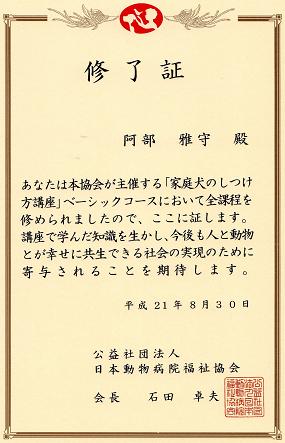 修了証
阿部 雅守 殿
あなたは本協会が主催する「家庭犬のしつけ
方講座」ベーシックコースにおいて全課程を
修められましたので、ここに証します。
講座で学んだ知識を生かし、今後も人と動物
とが幸せに共生できる社会の実現のために
寄与されることを期待します。
平成21年8月30日
公益社団法人
日本動物病院福祉協会
会長 石田 卓夫